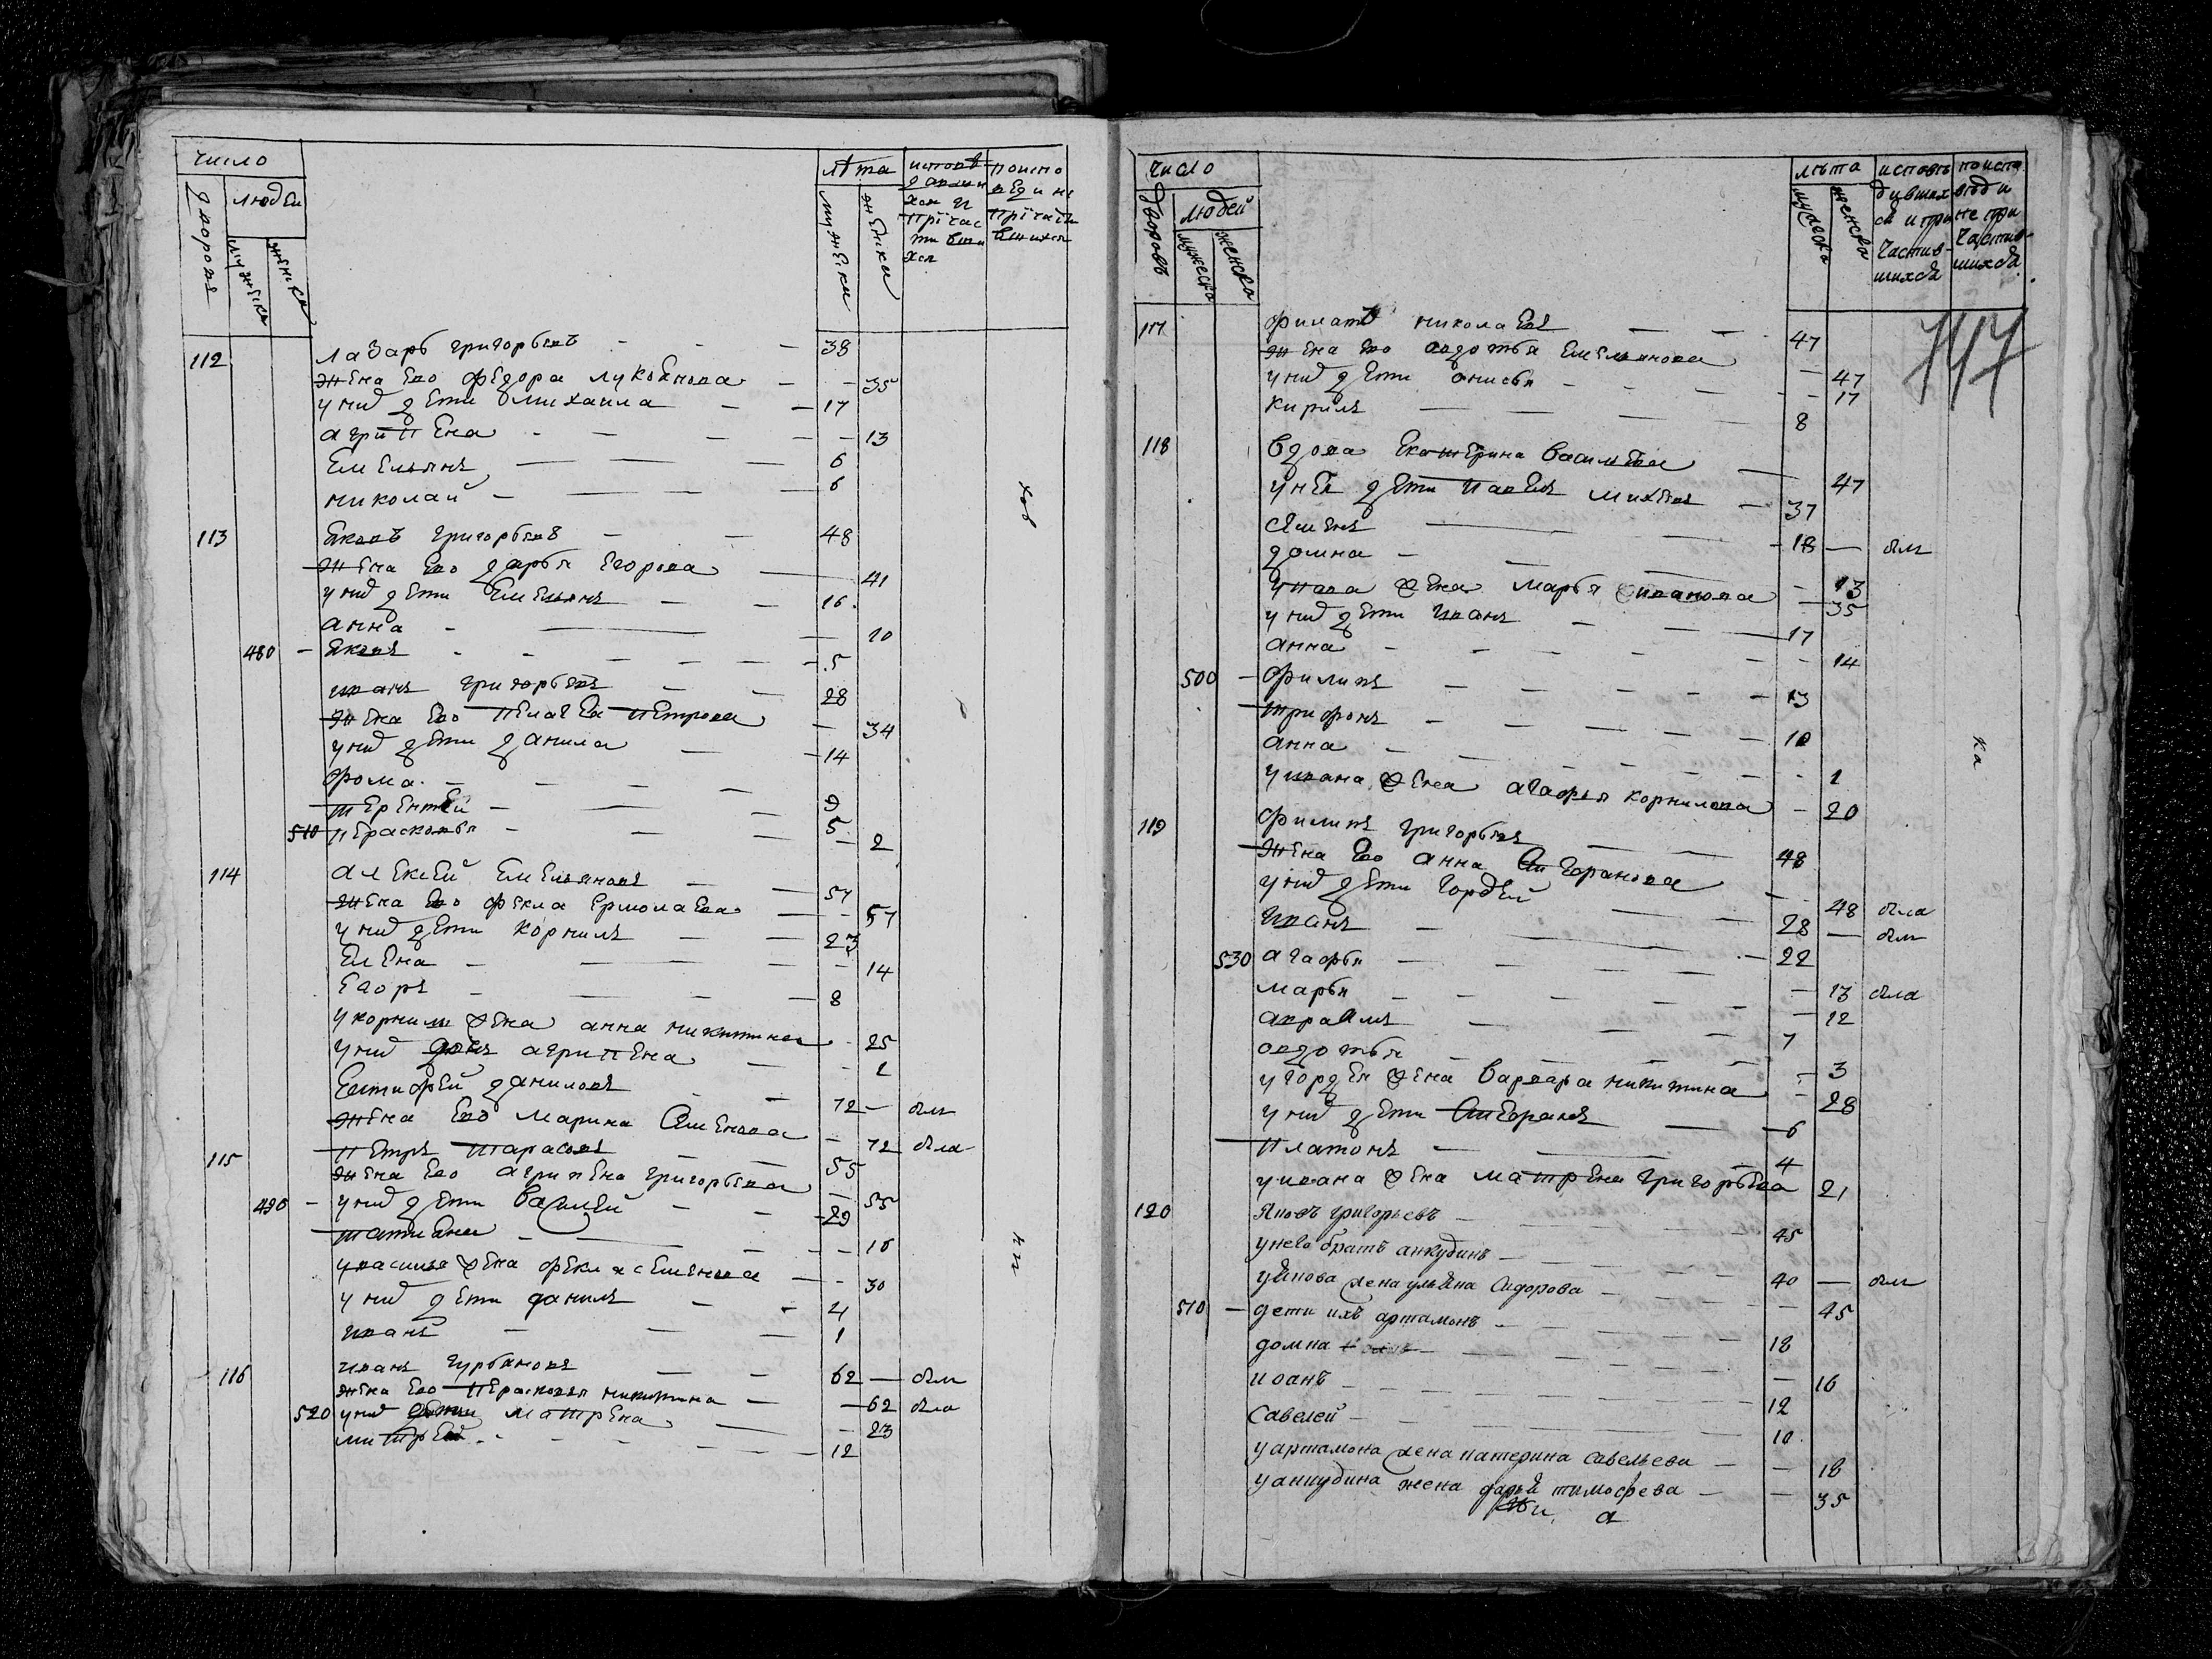 число
дворовъ
людей
мужска
женска
лѣта
мужеска
женска
исповѣдавшихся и причастившихся
поисповеди не причастившихся
112 лазарь григорьевъ 38
жена ево федора лукоянова 35
у них дети михаила 17
агрипена 13
емельянъ 6
николаи 6
113 яковъ григорьевъ 48
жена ево дарья егорова 41
у них дети емельянъ 16
анна 10
480 яковъ 5
иванъ григорьевъ 28
жена ево пелагея петрова 34
у них дети данила 14
фома 9
терентеи 5
510 перасковья 2
114 алексеи емельяновъ 57
жена ево фекла ермолаева 57
у них дети корнилъ 23
елена 14
егоръ 8
у корнила жена анна никитина 25
у них дочь агрипена 1
евтифеи даниловъ 72 был
жена ево марина семенова 72 была
115 петръ тарасовъ 55
жена ево агрипена григорьева 55
490 у них дети василеи 29
татиана 16
у василья жена фекла семенова 30
у них дети данилъ 4
иванъ 1
116 иванъ гурьяновъ 62 был
жена ево перасковья никитина 62 была
520 у них дети матрена 23
митреи 12
число
дворовъ
людей
мужеска
женска
лѣта
мужеска
женска
исповѣдувшихся и причастившихся
поисповѣди не причастившихся
747
117 филатъ николаевъ 47
жена ево авдотья емельянова 47
у них дети анисья 17
кирилъ 8
118 вдова екатерина васильева 47
у неи дети павелъ михеевъ 37
семенъ 18 был
домна 13
у павла жена марья иванова 35
у них дети иванъ 17
анна 14
500 филипъ 13
трифонъ 10
анна 1
у ивана жена агафья корнилова 20
119 филипъ григорьевъ 48
жена ево анна 48 была
у них дети гордеи 28 был
иванъ 22
530 агафья 13 была
марья 12
авраамъ 7
авдотья 3
у гордея жена варвара никитина 28
у них дети 6
платонъ 4
у ивана жена матрена григорьева 21
120 яковъ григорьевъ 45
у него братъ анкудинъ 40 был
у якова жена ульяна сидорова 45
510 дети ихъ артамонъ 18
домна 16
иоанъ 12
савелей 10
у артамона жена катерина савельева 18
у анкудина жена дарья тимофеева 35